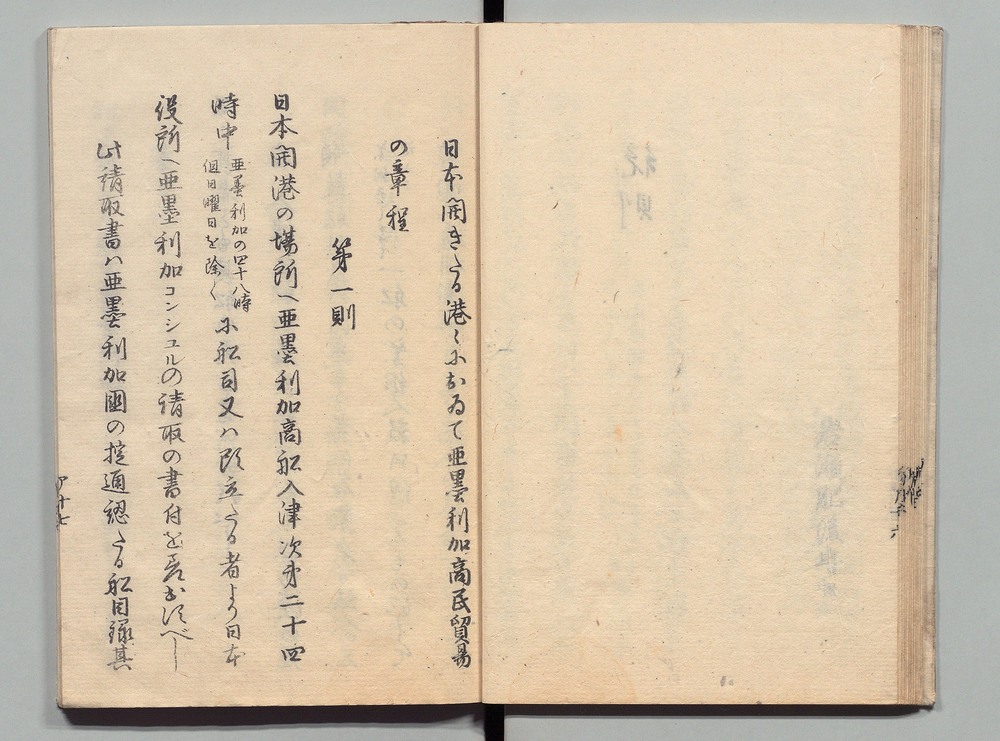 日本開きたる港々におゐて亜墨利加商民貿易
の章程
第一則
日本開港の場所へ亜墨利加商船入津次第二十四
時中
亜墨利加の四十八時
但日曜日を除く
に船司又ハ頭立たる者より日本
役所へ亜墨利加コンシュルの請取の書付を差出すべし
此請取書ハ亜墨利加國の掟通認たる船目録其